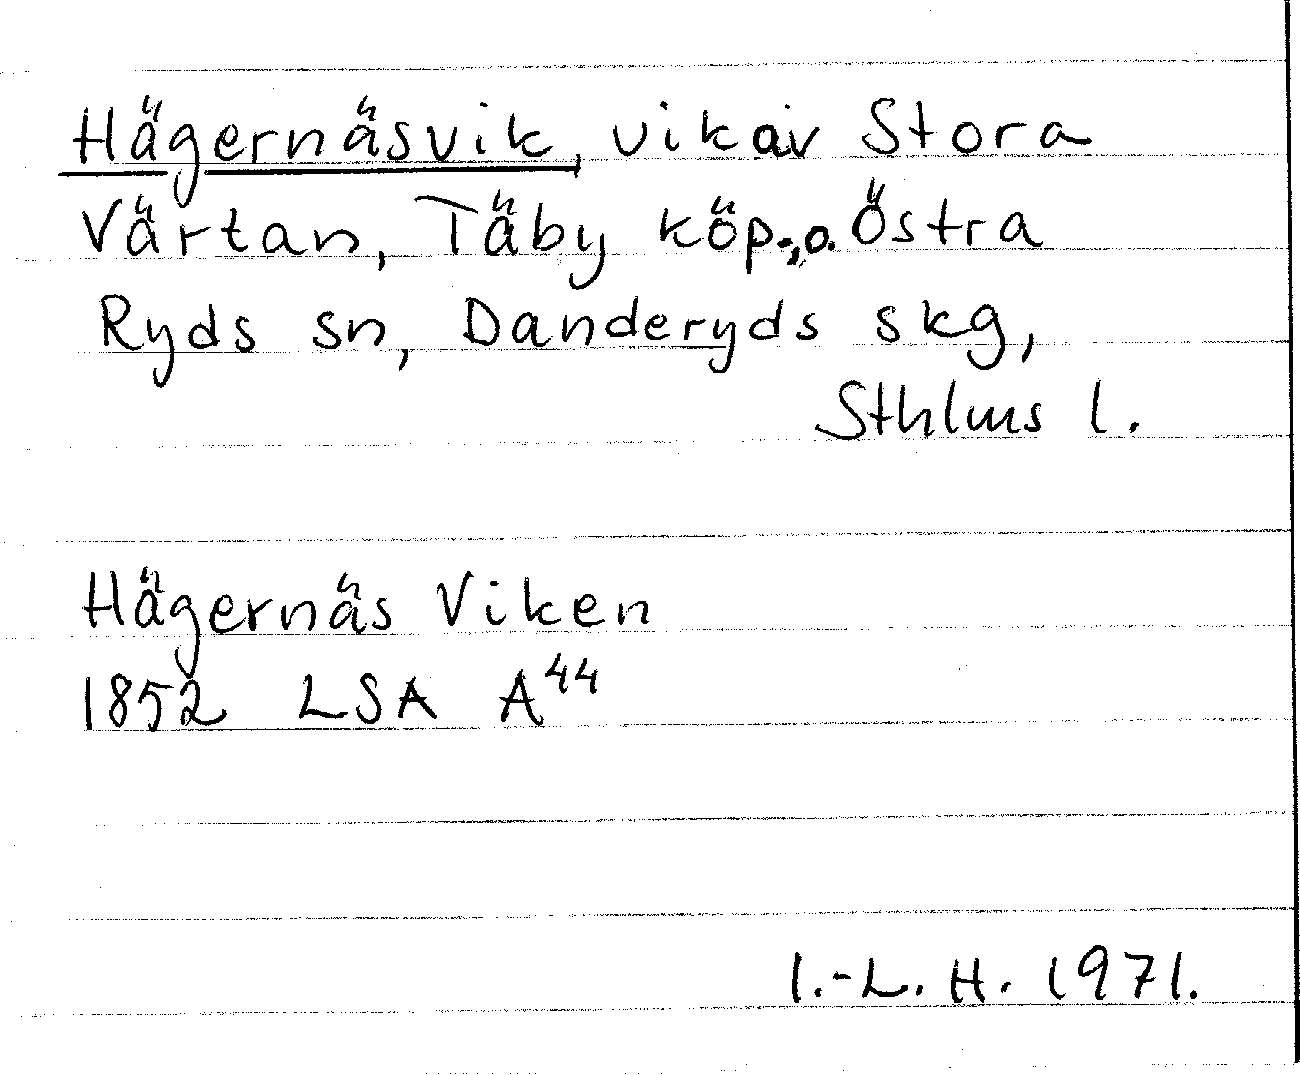 Hägernäsvik, vik av Stora
Värtan, Täby köp., o. Östra
Ryds sn, Danderyds skg,
Sthlms l.
Hägernäs Viken
1852 LSA A44
I.-L. H. 1971.